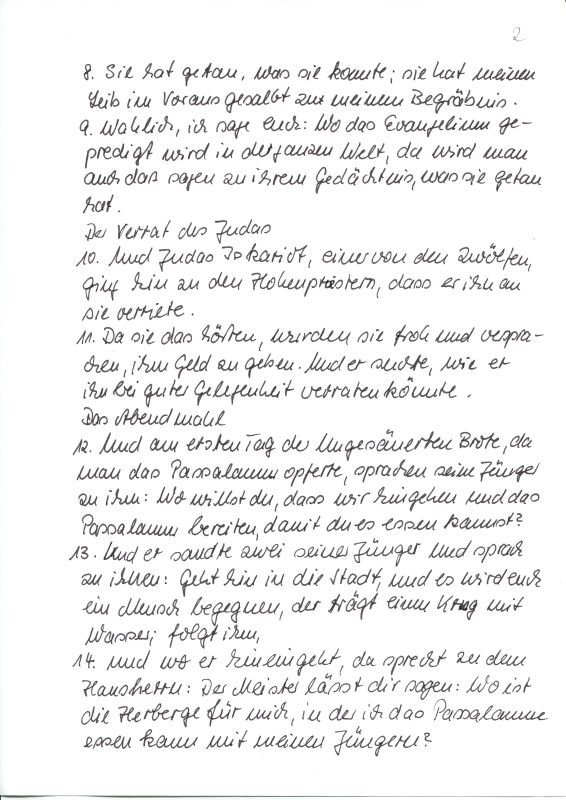 2
8. Sie hat getan, was sie konnte; sie hat meinen
Leib im Voraus gesalbt zu meinem Begräbnis.
9. Wahlich, ich sage Euch: Wo das Evangelium ge-
predigt wird in der ganzen Welt, da wird man
auch das sagen zu ihrem Gedächtnis, was sie getan
hat.
Der Verrat des Judas
10. Und Judas Iskariot, einer von den Zwölfen,
ging hin zu den Hohenpriestern, dass er ihn an
sie verriete.
11. Da sie das hörten, wurden sie froh und verspra-
chen, ihm Geld zu geben. Und er suchte, wie er
ihn bei guter Gelegenheit verraten könnte.
Das Abendmahl
12. Und am ersten Tag der Ungesäuerten Brote, da
man das Passalamm opferte, sprachen seine Jünger
zu ihm: Wo willst du, dass wir hingehen und das
Passalamm bereiten, damit du es essen kannst?
13. Und er sandte zwei seiner Jünger und sprach
zu ihnen: Geht hin in die Stadt, und es wird euch
ein Mensch begegnen, der trägt einen Krug mit
Wasser; folgt ihm,
14. und wo er hineingeht, da sprecht zu dem
Hausherrn: Der Meister lässt dir sagen: Wo ist
die Herberge für mich, in der ich das Passalamm
essen kann mit meinen Jüngern?